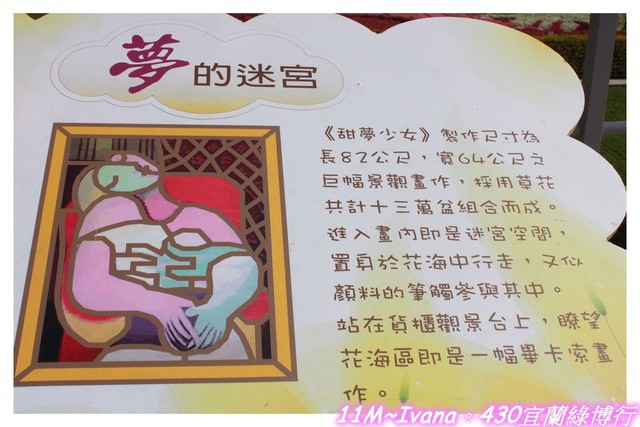 夢的迷宮
《甜夢少女》製作尺寸為
長82公尺，寬64公尺之
巨幅景觀畫作，採用草花
共計十三萬盆組合而成。
進入畫內即是迷宮空間，
置身於花海中行走，又似
顏料的筆觸參與其中。
站在貨櫃觀景台上，瞭望
花海區即是一幅畢卡索畫
作。
11M~Ivana。430宜蘭綠博行